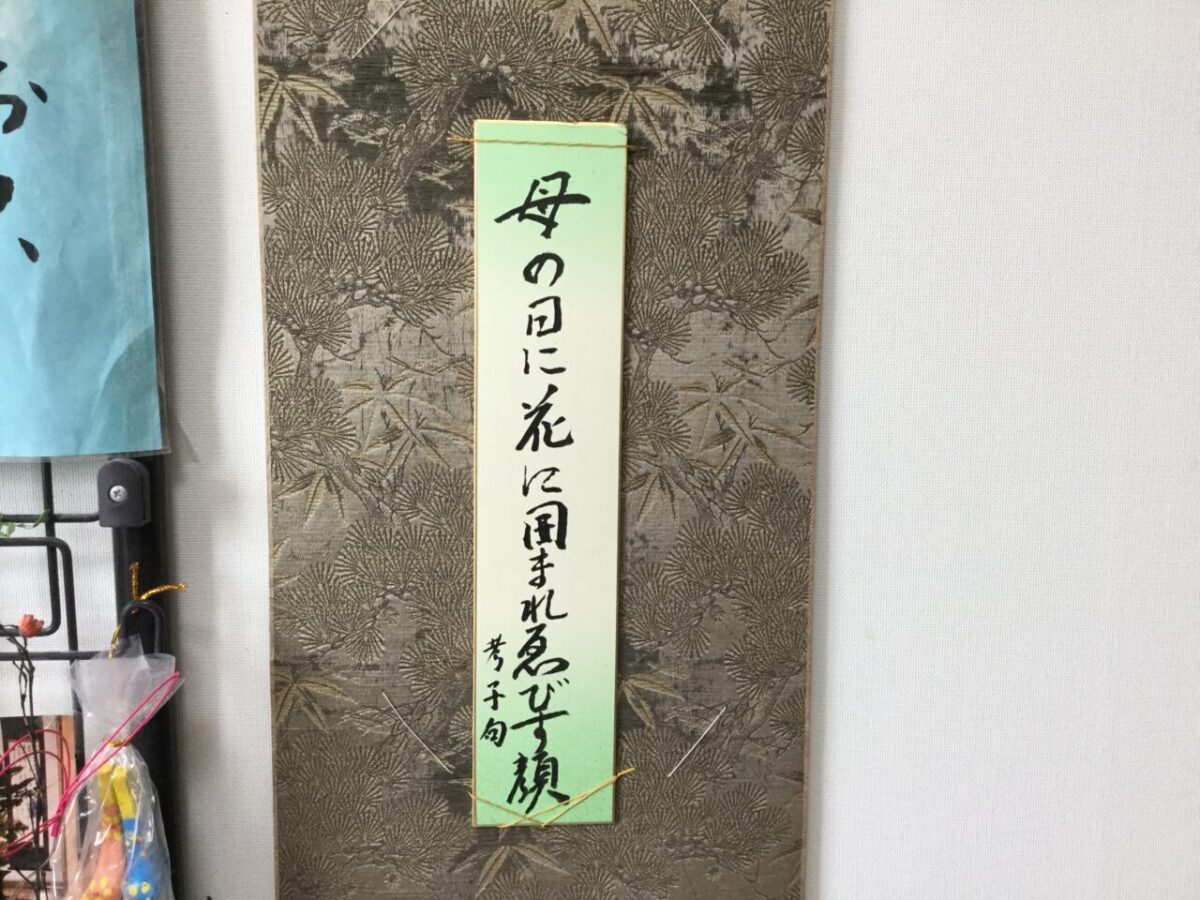 母の日に花に囲まれゑびす顔
芳子句